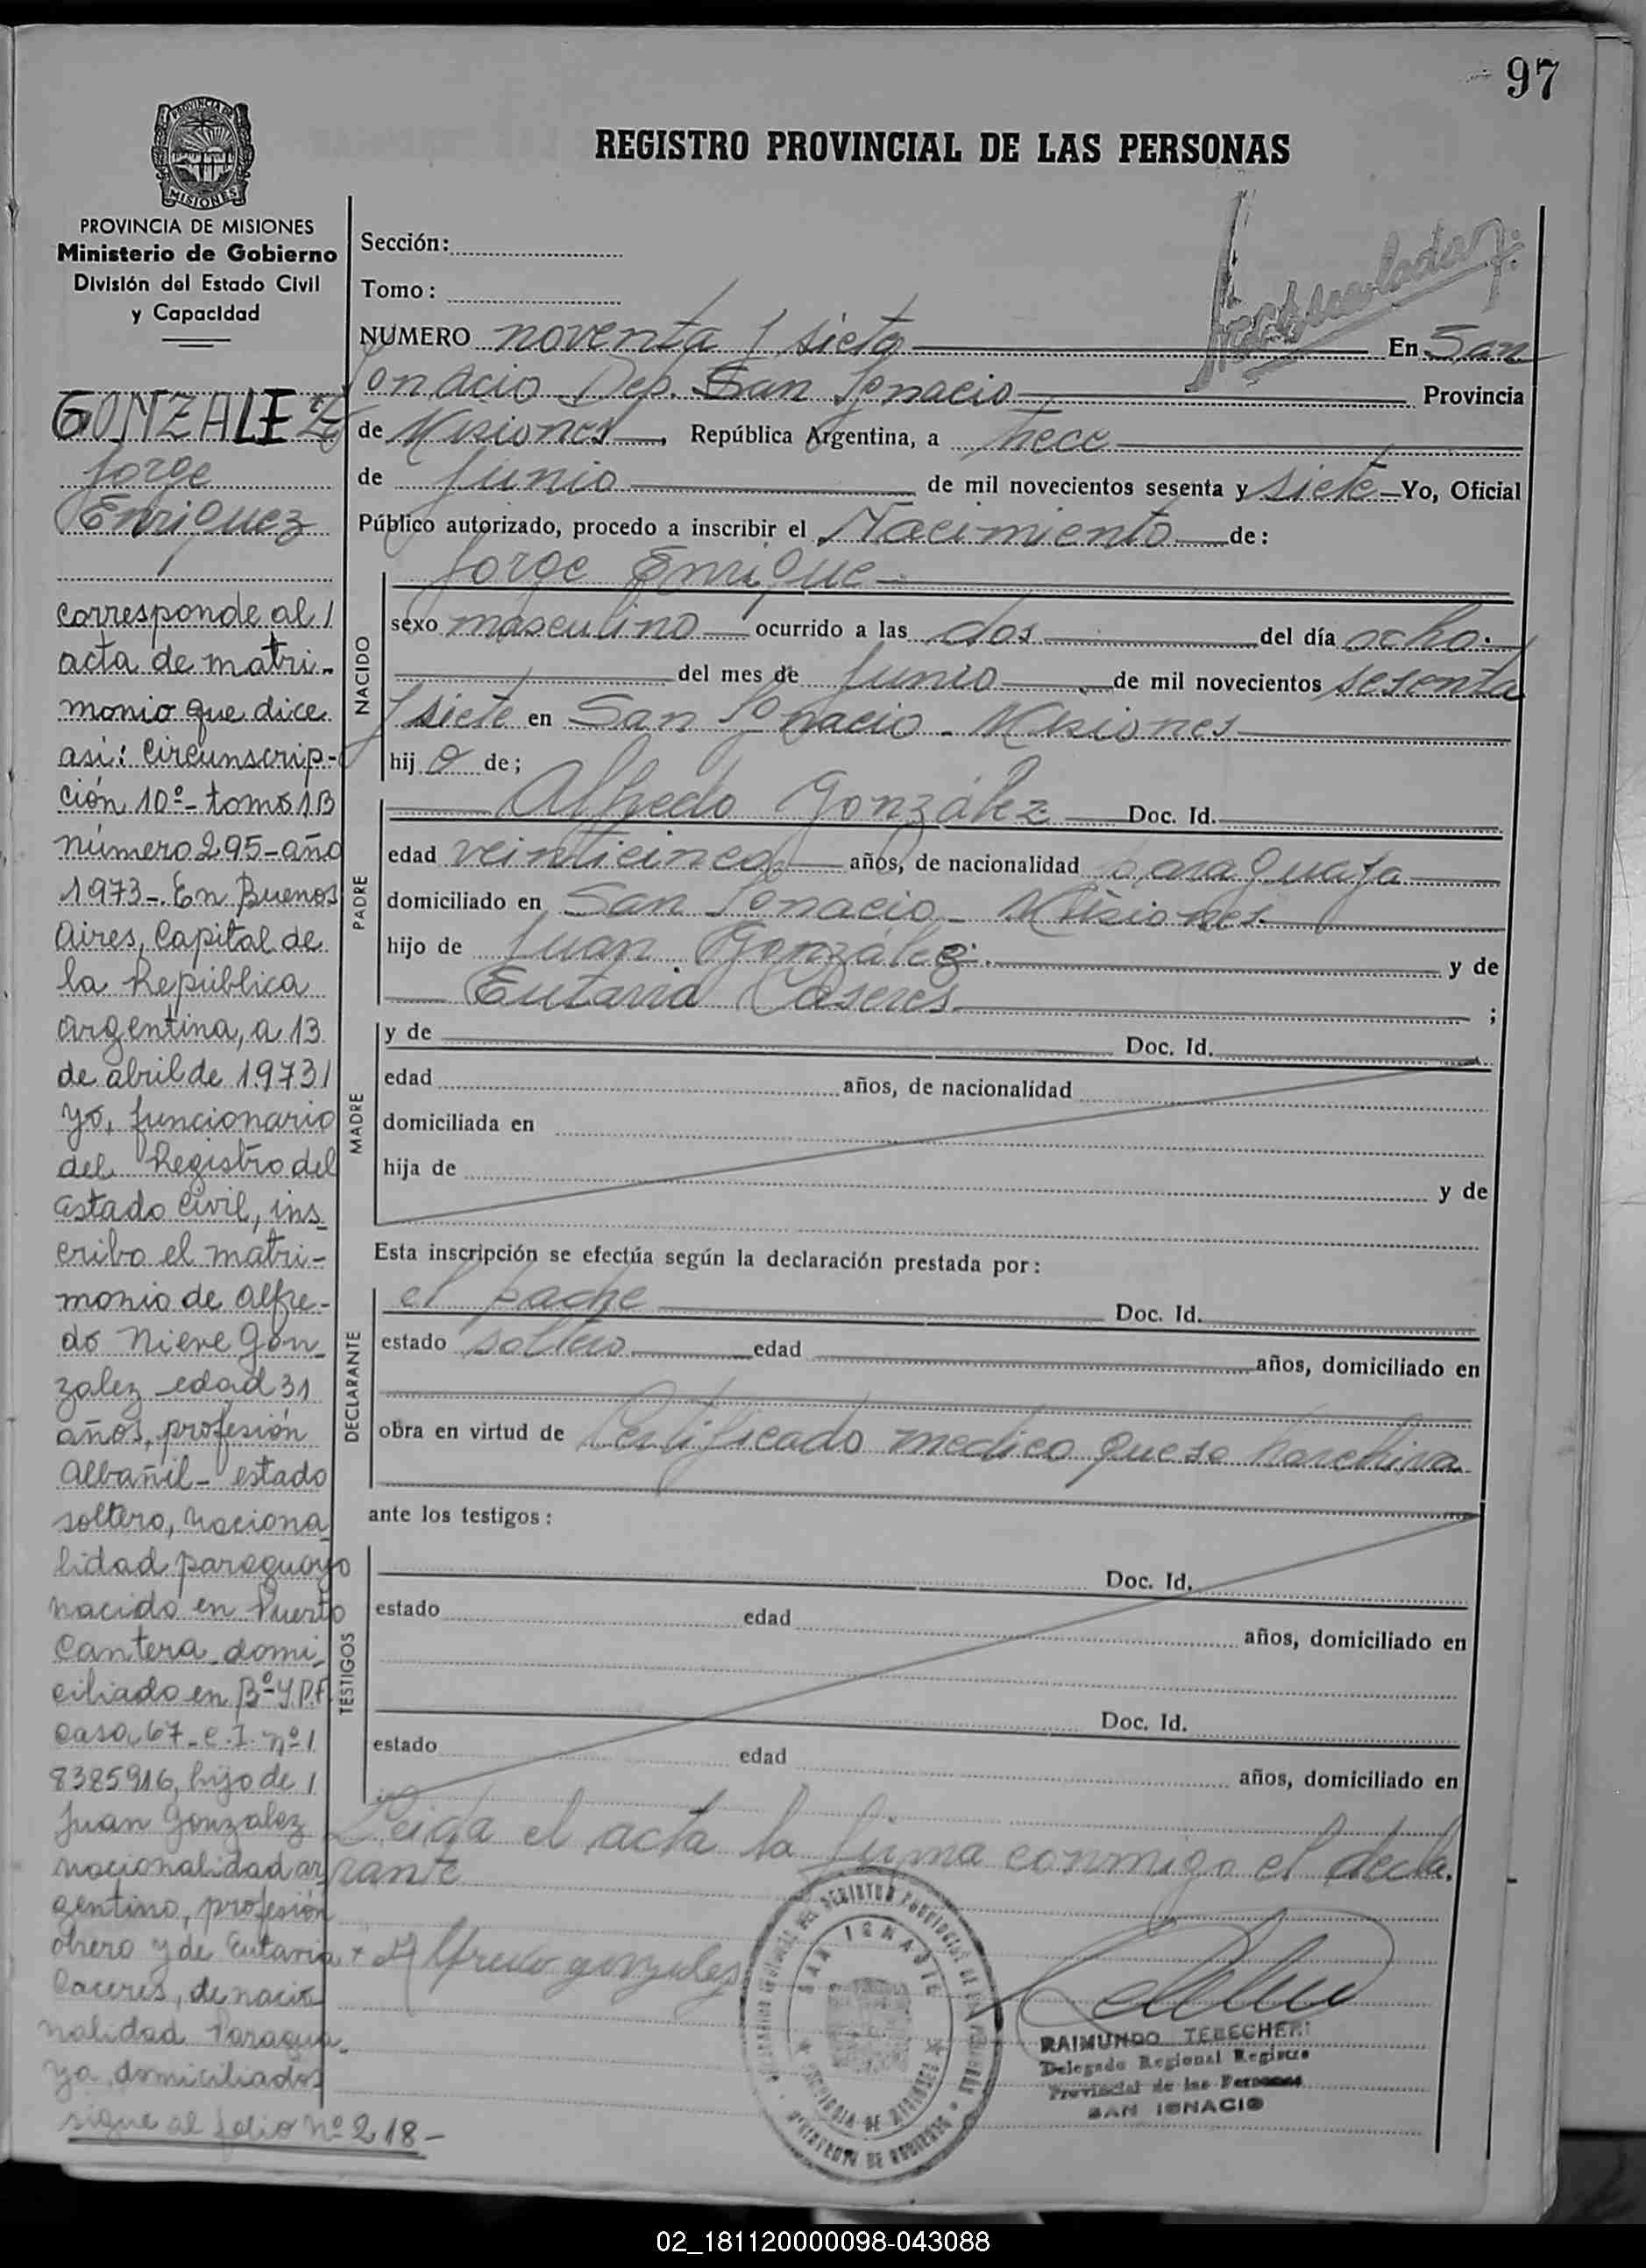 97
REGISTRO PROVINCIAL DE LAS PERSONAS
PROVINCIA DE
MISIONES
PROVINCIA DE MISIONES
Ministerio de Gobierno
División del Estado Civil
y Capacidad
GONZALEZ
Jorge
Enriquez
corresponde al
acta de matri-
monio que dice
asi: Circunscrip-
ción 10º- tomo 1B
número 295- año
1973-. En Buenos
Aires, Capital de
la República
Argentina, a 13
de abril de 1973
yo, funcionario
del Registro del
Estado Civil, ins-
cribo el matri-
monio de Alfre-
do Nieve Gon-
zalez edad 31
años, profesión
Albañil- estado
soltero, naciona-
lidad paraguayo
nacido en Puerto
Cantera domi-
ciliado en Bº Y.P.F.
casa 67- C.I. nº
8385916, hijo de
Juan Gonzalez
nacionalidad ar-
gentino, profesión
obrero y de Eutaria
Caceres, de nacio-
nalidad Paragua-
ya domiciliados
sigue al folio nº 218-
Sección:
Tomo:
NUMERO noventa y siete En San
Ignacio Dep. San Ignacio Provincia
de Misiones, República Argentina, a trece
de Junio de mil novecientos sesenta y siete Yo, Oficial
Público autorizado, procedo a inscribir el Nacimiento de:
Jorge Enrique
NACIDO
sexo masculino ocurrido a las dos del día ocho
del mes de Junio de mil novecientos sesenta
y siete en San Ignacio - Misiones
hijo de;
PADRE
Alfredo González Doc. Id.
edad veinticinco años, de nacionalidad paraguaya
domiciliado en San Ignacio - Misiones
hijo de Juan González y de
Eutaria Caseres ;
MADRE
y de Doc. Id.
edad años, de nacionalidad
domiciliada en
hija de y de
Esta inscripción se efectúa según la declaración prestada por:
DECLARANTE
el padre Doc. Id.
estado soltero edad años, domiciliado en
obra en virtud de Certificado medico que se harchiva
ante los testigos:
TESTIGOS
Doc. Id.
estado edad años, domiciliado en
Doc. Id.
estado edad años, domiciliado en
Leida el acta la firma conmigo el decla-
rante
+ Alfredo gonzales
SAN IGNACIO
RAIMUNDO TEBECHERI
Delegado Regional Registro
Provincial de las Personas
SAN IGNACIO
02_181120000098-043088